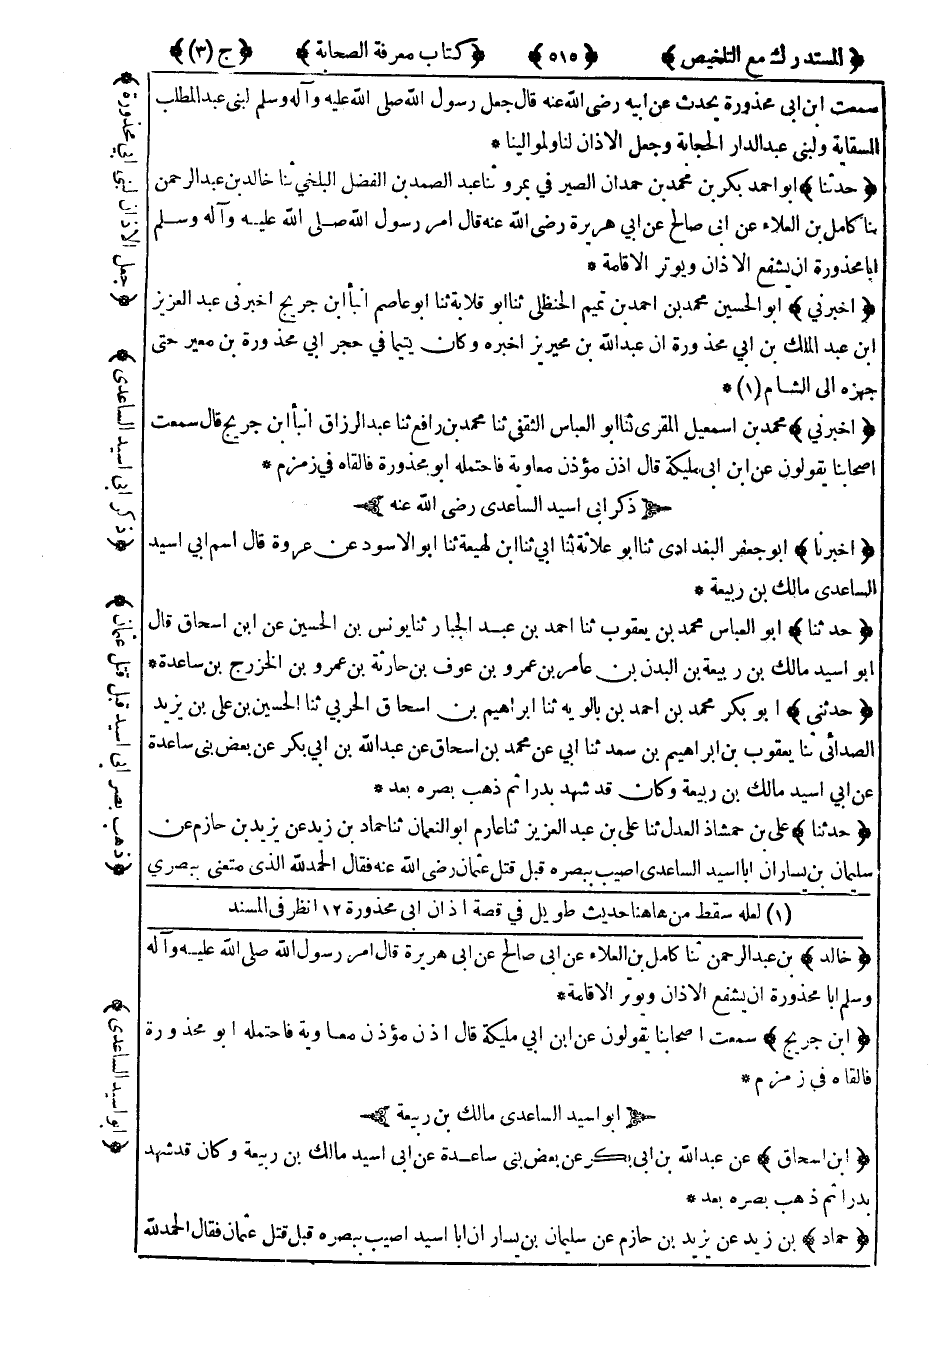 ﴿ المستدرك مع التلخيص ﴾ ﴿ ٥١٥ ﴾ ﴿ كتاب معرفة الصحابة ﴾ ﴿ ج (٣) ﴾
سمعت ابن ابى محذورة يحدث عن ابيه رضى الله عنه قال جعل رسول الله صلى الله عليه وآله وسلم لبنى عبد المطلب
السقاية ولبنى عبد الدار الحجابة وجعل الاذان لنا ولموالينا *
﴿ حدثنا ﴾ ابو احمد بكر بن محمد بن حمدان الصير في بمرو ثنا عبد الصمد بن الفضل البلخي ثنا خالد بن عبد الرحمن
ثنا كامل بن العلاء عن ابى صالح عن ابي هريرة رضى الله عنه قال امر رسول الله صلى الله عليه وآله وسلم
ابا محذورة ان يشفع الاذان ويوتر الاقامة *
﴿ اخبرني ﴾ ابو الحسين محمد بن احمد بن تميم الحنظلي ثنا ابو قلابة ثنا ابو عاصم انبأ ابن جريج اخبرنى عبد العزيز
ابن عبد الملك بن ابي محذورة ان عبد الله بن محيريز اخبره وكان يتيما في حجر ابي محذورة بن معير حتى
جهزه الى الشام (١) *
﴿ اخبرني ﴾ محمد بن اسمعيل المقرى ثنا ابو العباس الثقفي ثنا محمد بن رافع ثنا عبد الرزاق انبأ ابن جريج قال سمعت
اصحابنا يقولون عن ابن ابى مليكة قال اذن مؤذن معاوية فاحتمله ابو محذورة فالقاه في زمزم *
ذكر ابى اسيد الساعدى رضى الله عنه
﴿ اخبرنا ﴾ ابو جعفر البغدادى ثنا ابو علاثة ثنا ابي ثنا ابن لهيعة ثنا ابو الاسود عن عروة قال اسم ابي اسيد
الساعدى مالك بن ربيعة *
﴿ حدثنا ﴾ ابو العباس محمد بن يعقوب ثنا احمد بن عبد الجبار ثنا يونس بن الحسين عن ابن اسحاق قال
ابو اسيد مالك بن ربيعة بن البدن بن عامر بن عمرو بن عوف بن حارثة بن عمرو بن الخزرج بن ساعدة *
﴿ حدثنى ﴾ ابو بكر محمد بن احمد بن بالويه ثنا ابراهيم بن اسحاق الحربي ثنا الحسين بن على بن يزيد
الصدائى ثنا يعقوب بن ابراهيم بن سعد ثنا ابي عن محمد بن اسحاق عن عبد الله بن ابي بكر عن بعض بنى ساعدة
عن ابي اسيد مالك بن ربيعة وكان قد شهد بدرا ثم ذهب بصره بعد *
﴿ حدثنا ﴾ على بن حمشاذ العدل ثنا على بن عبد العزيز ثنا عارم ابو النعمان ثنا حماد بن زيد عن يزيد بن حازم عن
سليمان بن يسار ان ابا اسيد الساعدى اصيب ببصره قبل قتل عثمان رضى الله عنه فقال الحمد لله الذى متعنى ببصري
(١) لعله سقط من هاهنا حديث طويل في قصة اذان ابى محذورة ١٢ انظر فى المسند
﴿ خالد ﴾ بن عبد الرحمن ثنا كامل بن العلاء عن ابى صالح عن ابى هريرة قال امر رسول الله صلى الله عليه وآله
وسلم ابا محذورة ان يشفع الاذان ويوتر الاقامة *
﴿ ابن جريج ﴾ سمعت اصحابنا يقولون عن ابن ابي مليكة قال اذن مؤذن معاوية فاحتمله ابو محذورة
فالقاه في زمزم *
ابو اسيد الساعدى مالك بن ربيعة
﴿ ابن اسحاق ﴾ عن عبد الله بن ابى بكر عن بعض بنى ساعدة عن ابى اسيد مالك بن ربيعة وكان قد شهد
بدرا ثم ذهب بصره بعد *
﴿ حماد ﴾ بن زيد عن يزيد بن حازم عن سليمان بن يسار ان ابا اسيد اصيب ببصره قبل قتل عثمان فقال الحمد لله
﴿ جعل الاذان لبنى ابي محذورة ﴾
﴿ ذكر ابى اسيد الساعدى ﴾
﴿ ذهب بصر ابى اسيد قبل قتل عثمان ﴾
﴿ ابو اسيد الساعدى ﴾